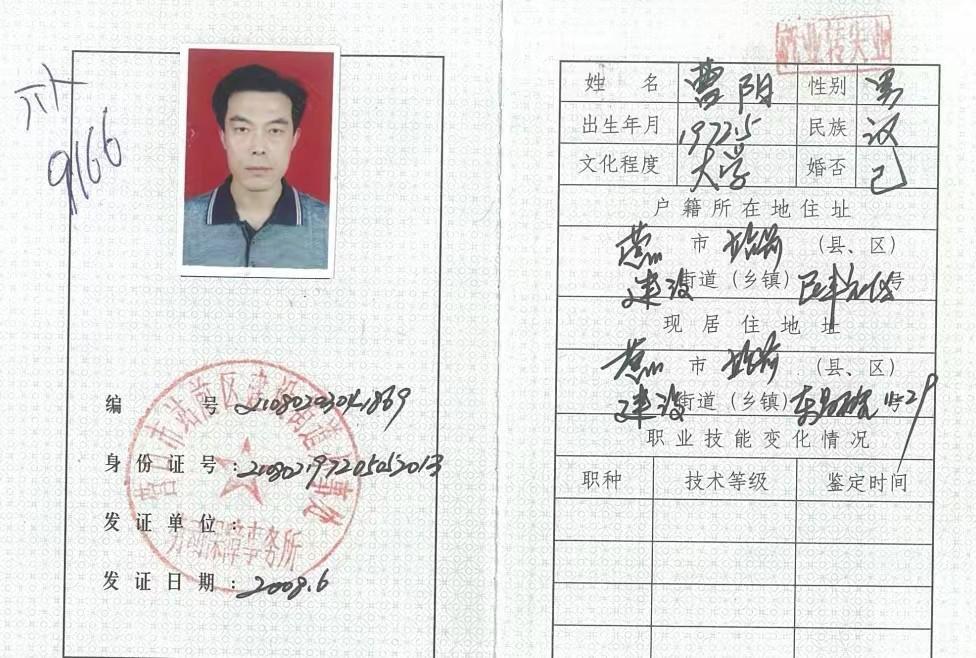 9166
编 号
身份证号:210802197205052013
发证单位:
发证日期:2009.6
营口市站前区建设街道办事处
劳动保障事务所
就业转失业
姓 名 曹阳 性别 男
出生年月 1972.5 民族 汉
文化程度 大学 婚否 已
户籍所在地住址
市 站前 (县、区)
建设 街道(乡镇) 号
现居住地址
市 站前 (县、区)
建设 街道(乡镇) 号
职业技能变化情况
职种 技术等级 鉴定时间